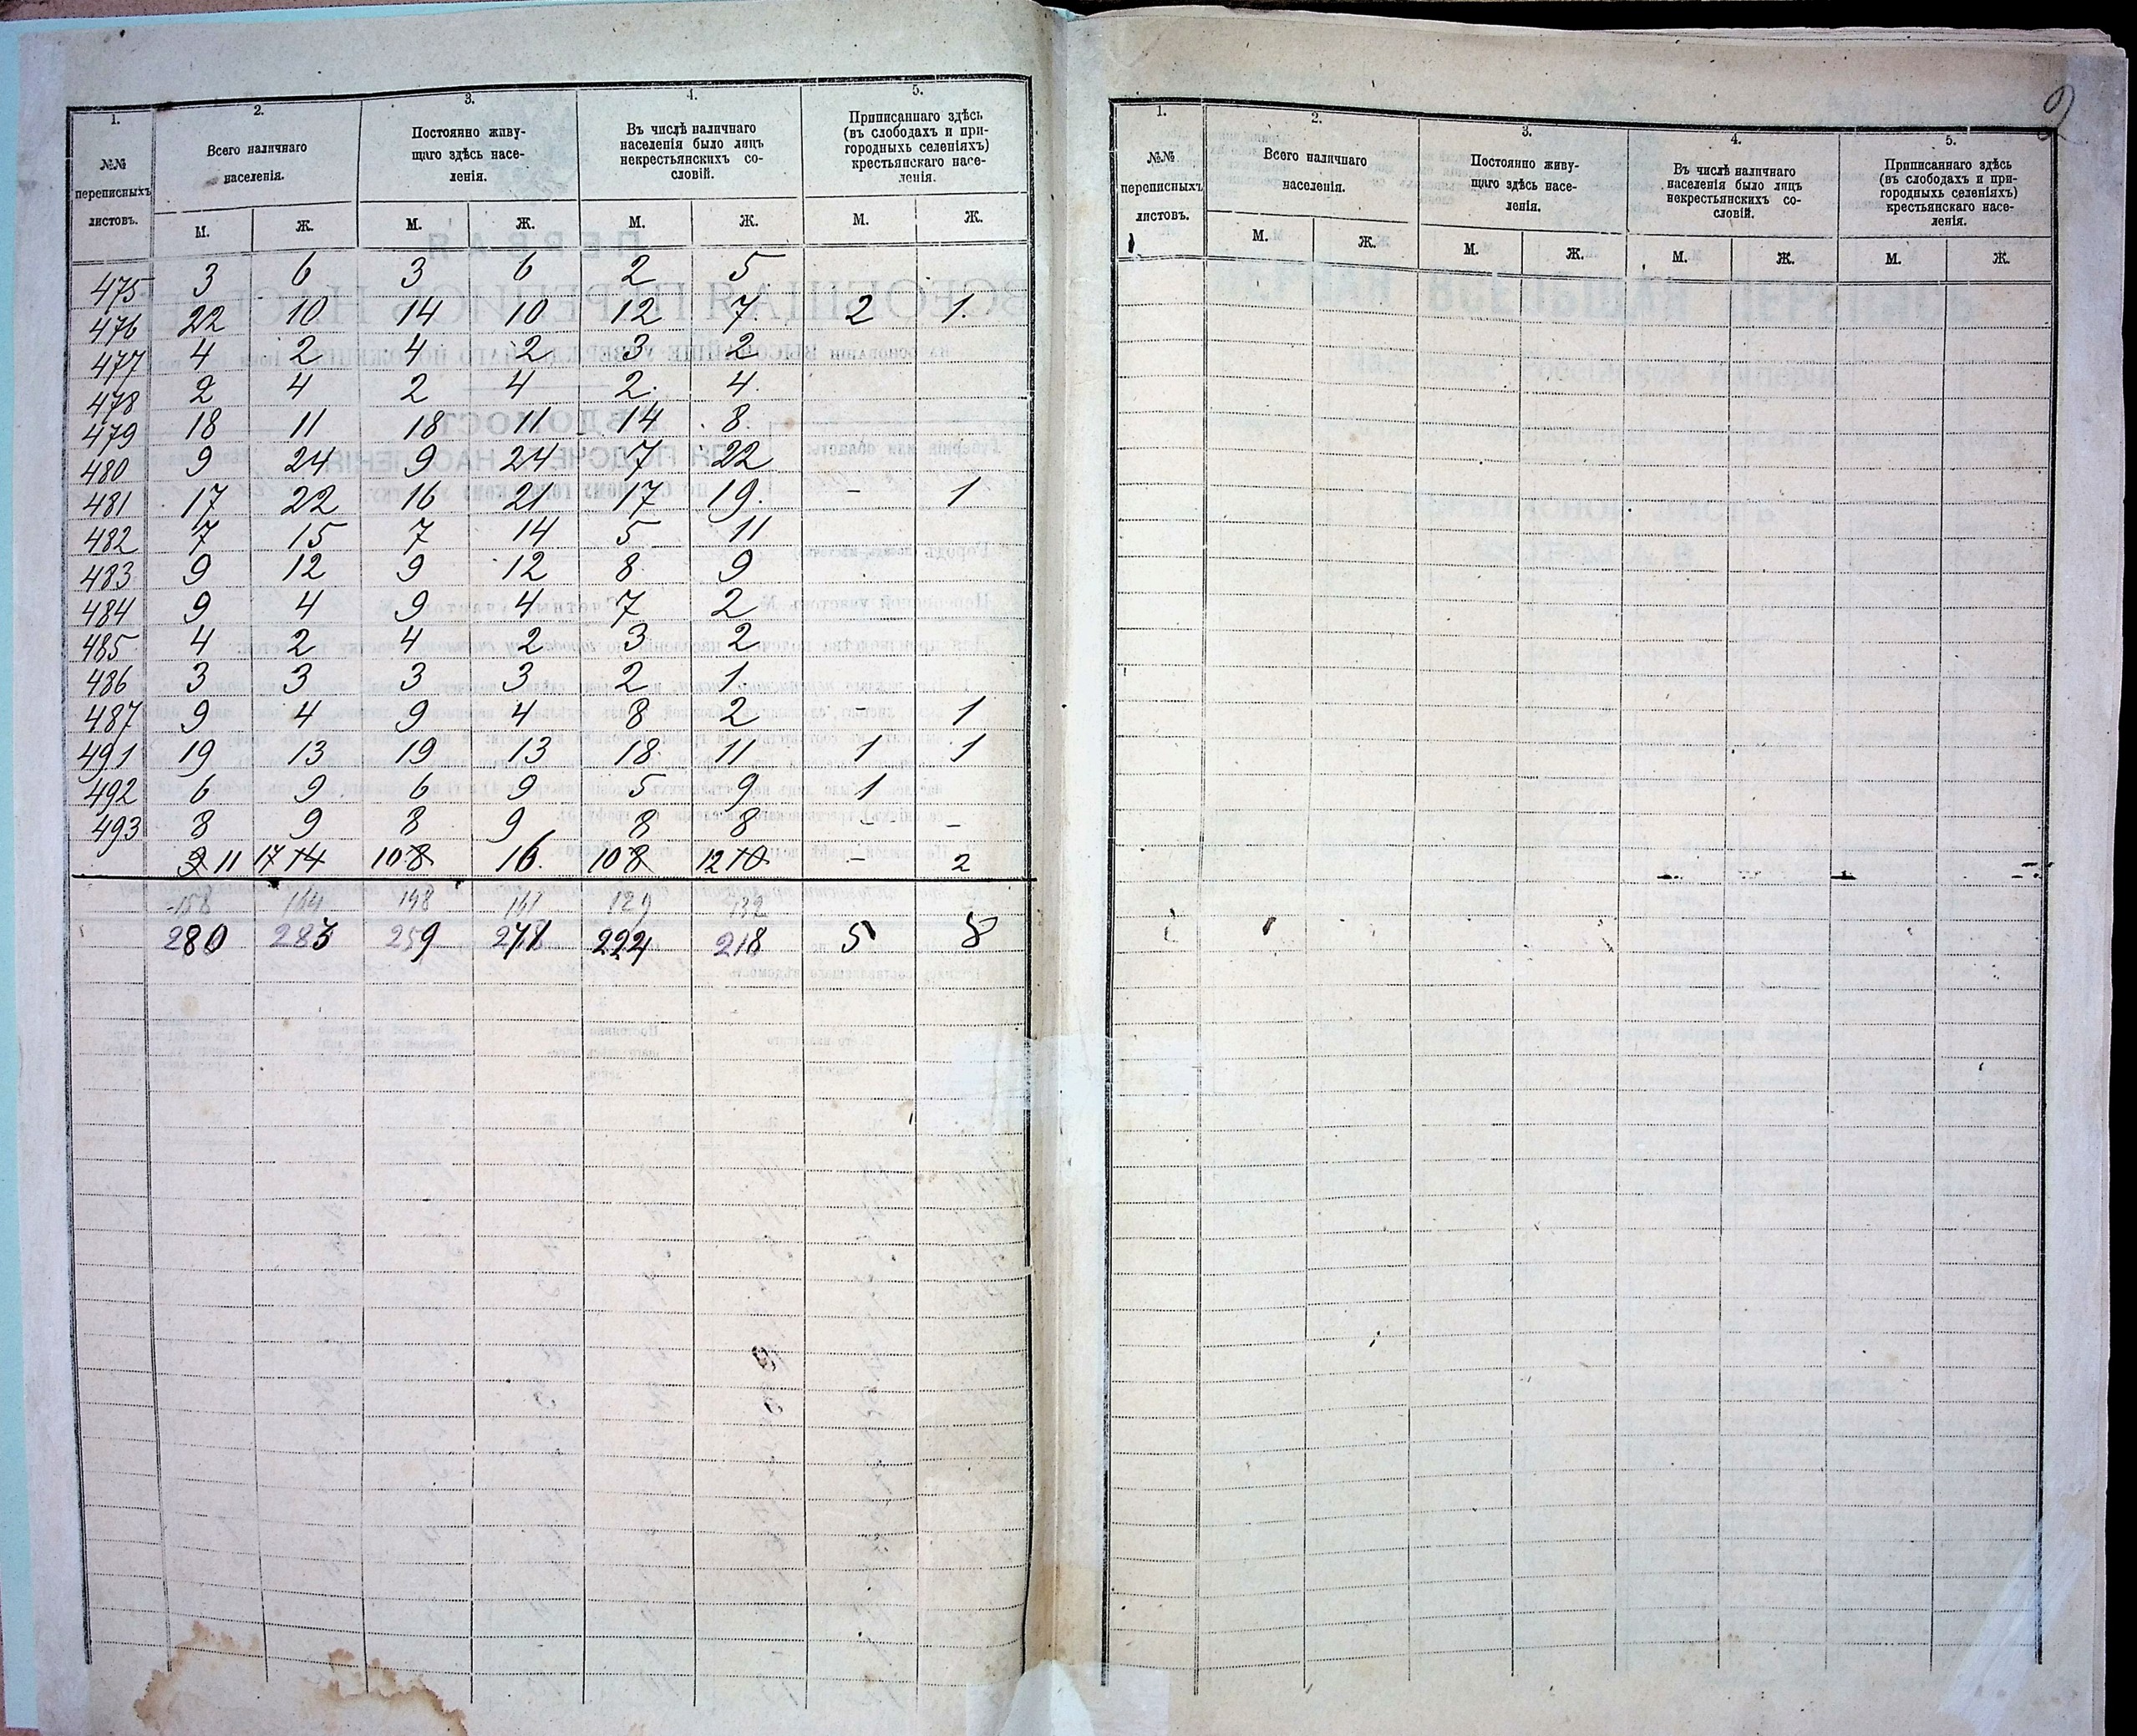 1. 2. 3. 4. 5.
№№ переписныхъ листовъ. Всего наличнаго населенія. Постоянно живущаго здѣсь населенія. Въ числѣ наличнаго населенія было лицъ некрестьянскихъ сословій. Приписаннаго здѣсь (въ слободахъ и пригородныхъ селеніяхъ) крестьянскаго населенія.
М. Ж. М. Ж. М. Ж. М. Ж.
475 3 6 3 6 2 5
476 22 10 14 10 12 7 2 1
477 4 2 4 2 3 2
478 2 4 2 4 2 4
479 18 11 18 11 14 8
480 9 24 9 24 7 22
481 17 22 16 21 17 19 - 1
482 7 15 7 14 5 11
483 9 12 9 12 8 9
484 9 4 9 4 7 2
485 4 2 4 2 3 2
486 3 3 3 3 2 1
487 9 4 9 4 8 2 - 1
491 19 13 19 13 18 11 1 1
492 6 9 6 9 5 9 1
493 8 9 8 9 8 8 - -
9 11 17 14 10 8 16 10 8 12 10 - 2
158 164 148 161 129 132
280 283 259 271 224 218 5 8
2
1. 2. 3. 4. 5.
№№ переписныхъ листовъ. Всего наличнаго населенія. Постоянно живущаго здѣсь населенія. Въ числѣ наличнаго населенія было лицъ некрестьянскихъ сословій. Приписаннаго здѣсь (въ слободахъ и пригородныхъ селеніяхъ) крестьянскаго населенія.
М. Ж. М. Ж. М. Ж. М. Ж.